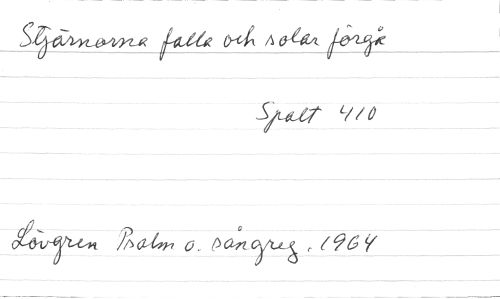 Stjärnorna falla och solar förgå
Spalt 410
Lövgren Psalm o. sångreg. 1964